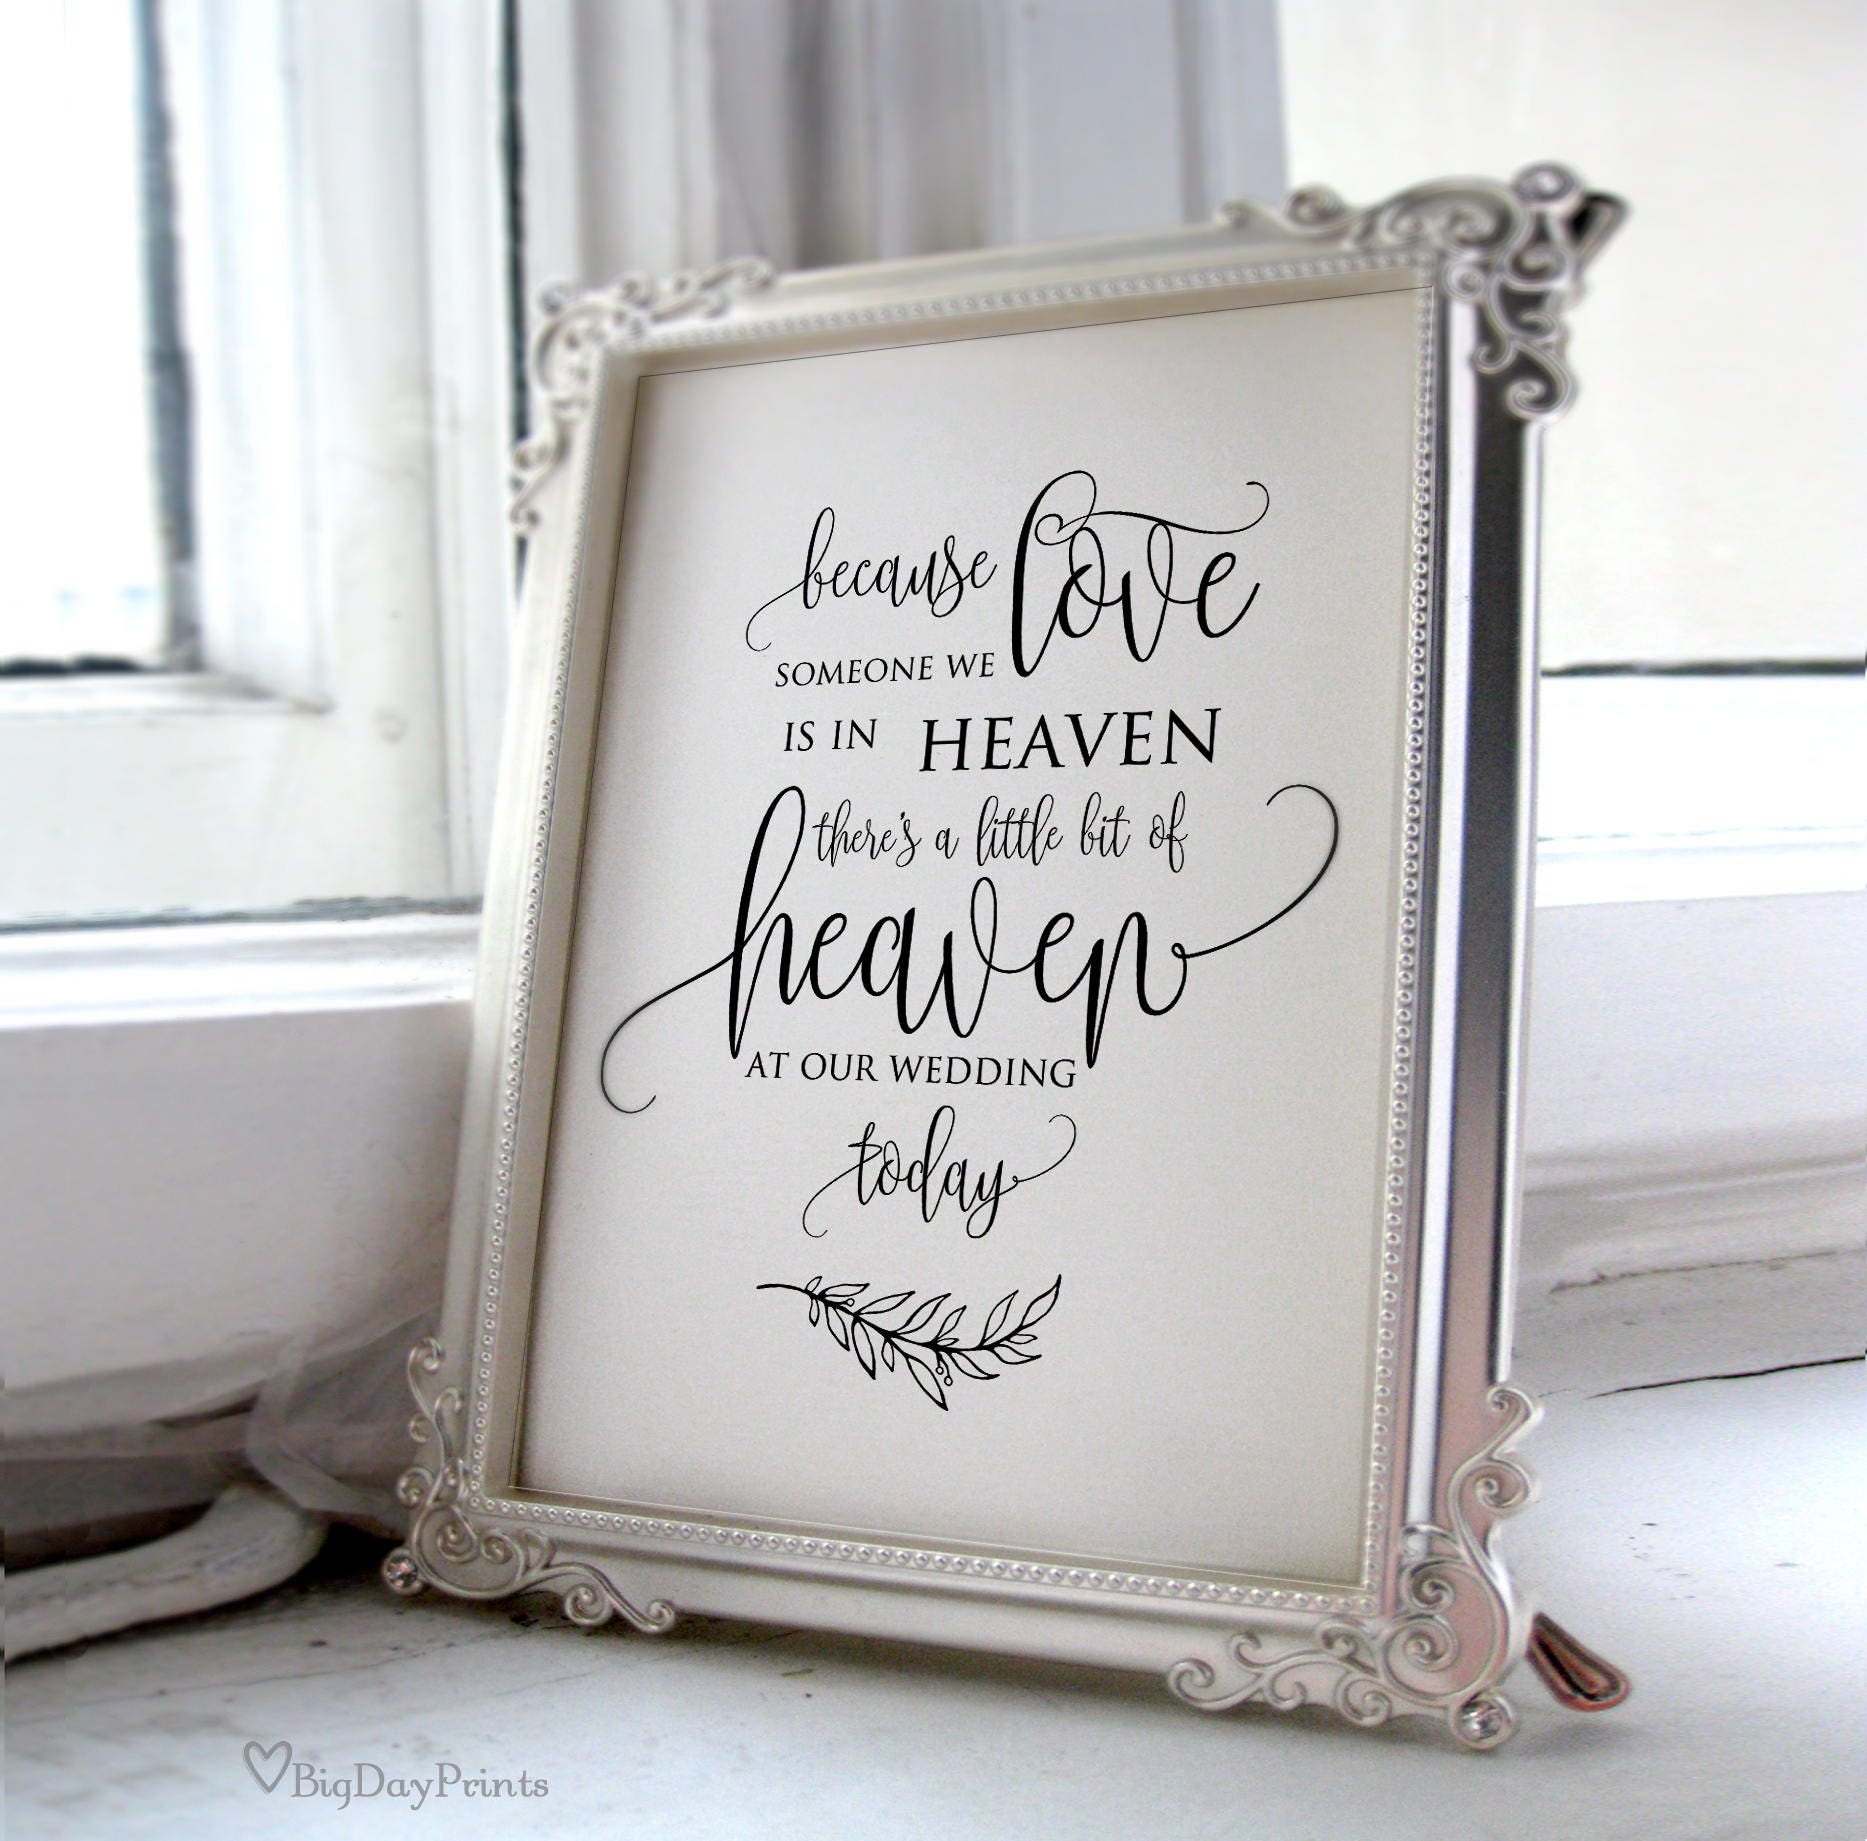 because love
SOMEONE WE
IS IN HEAVEN
there's a little bit of
heaven
AT OUR WEDDING
today
BigDayPrints